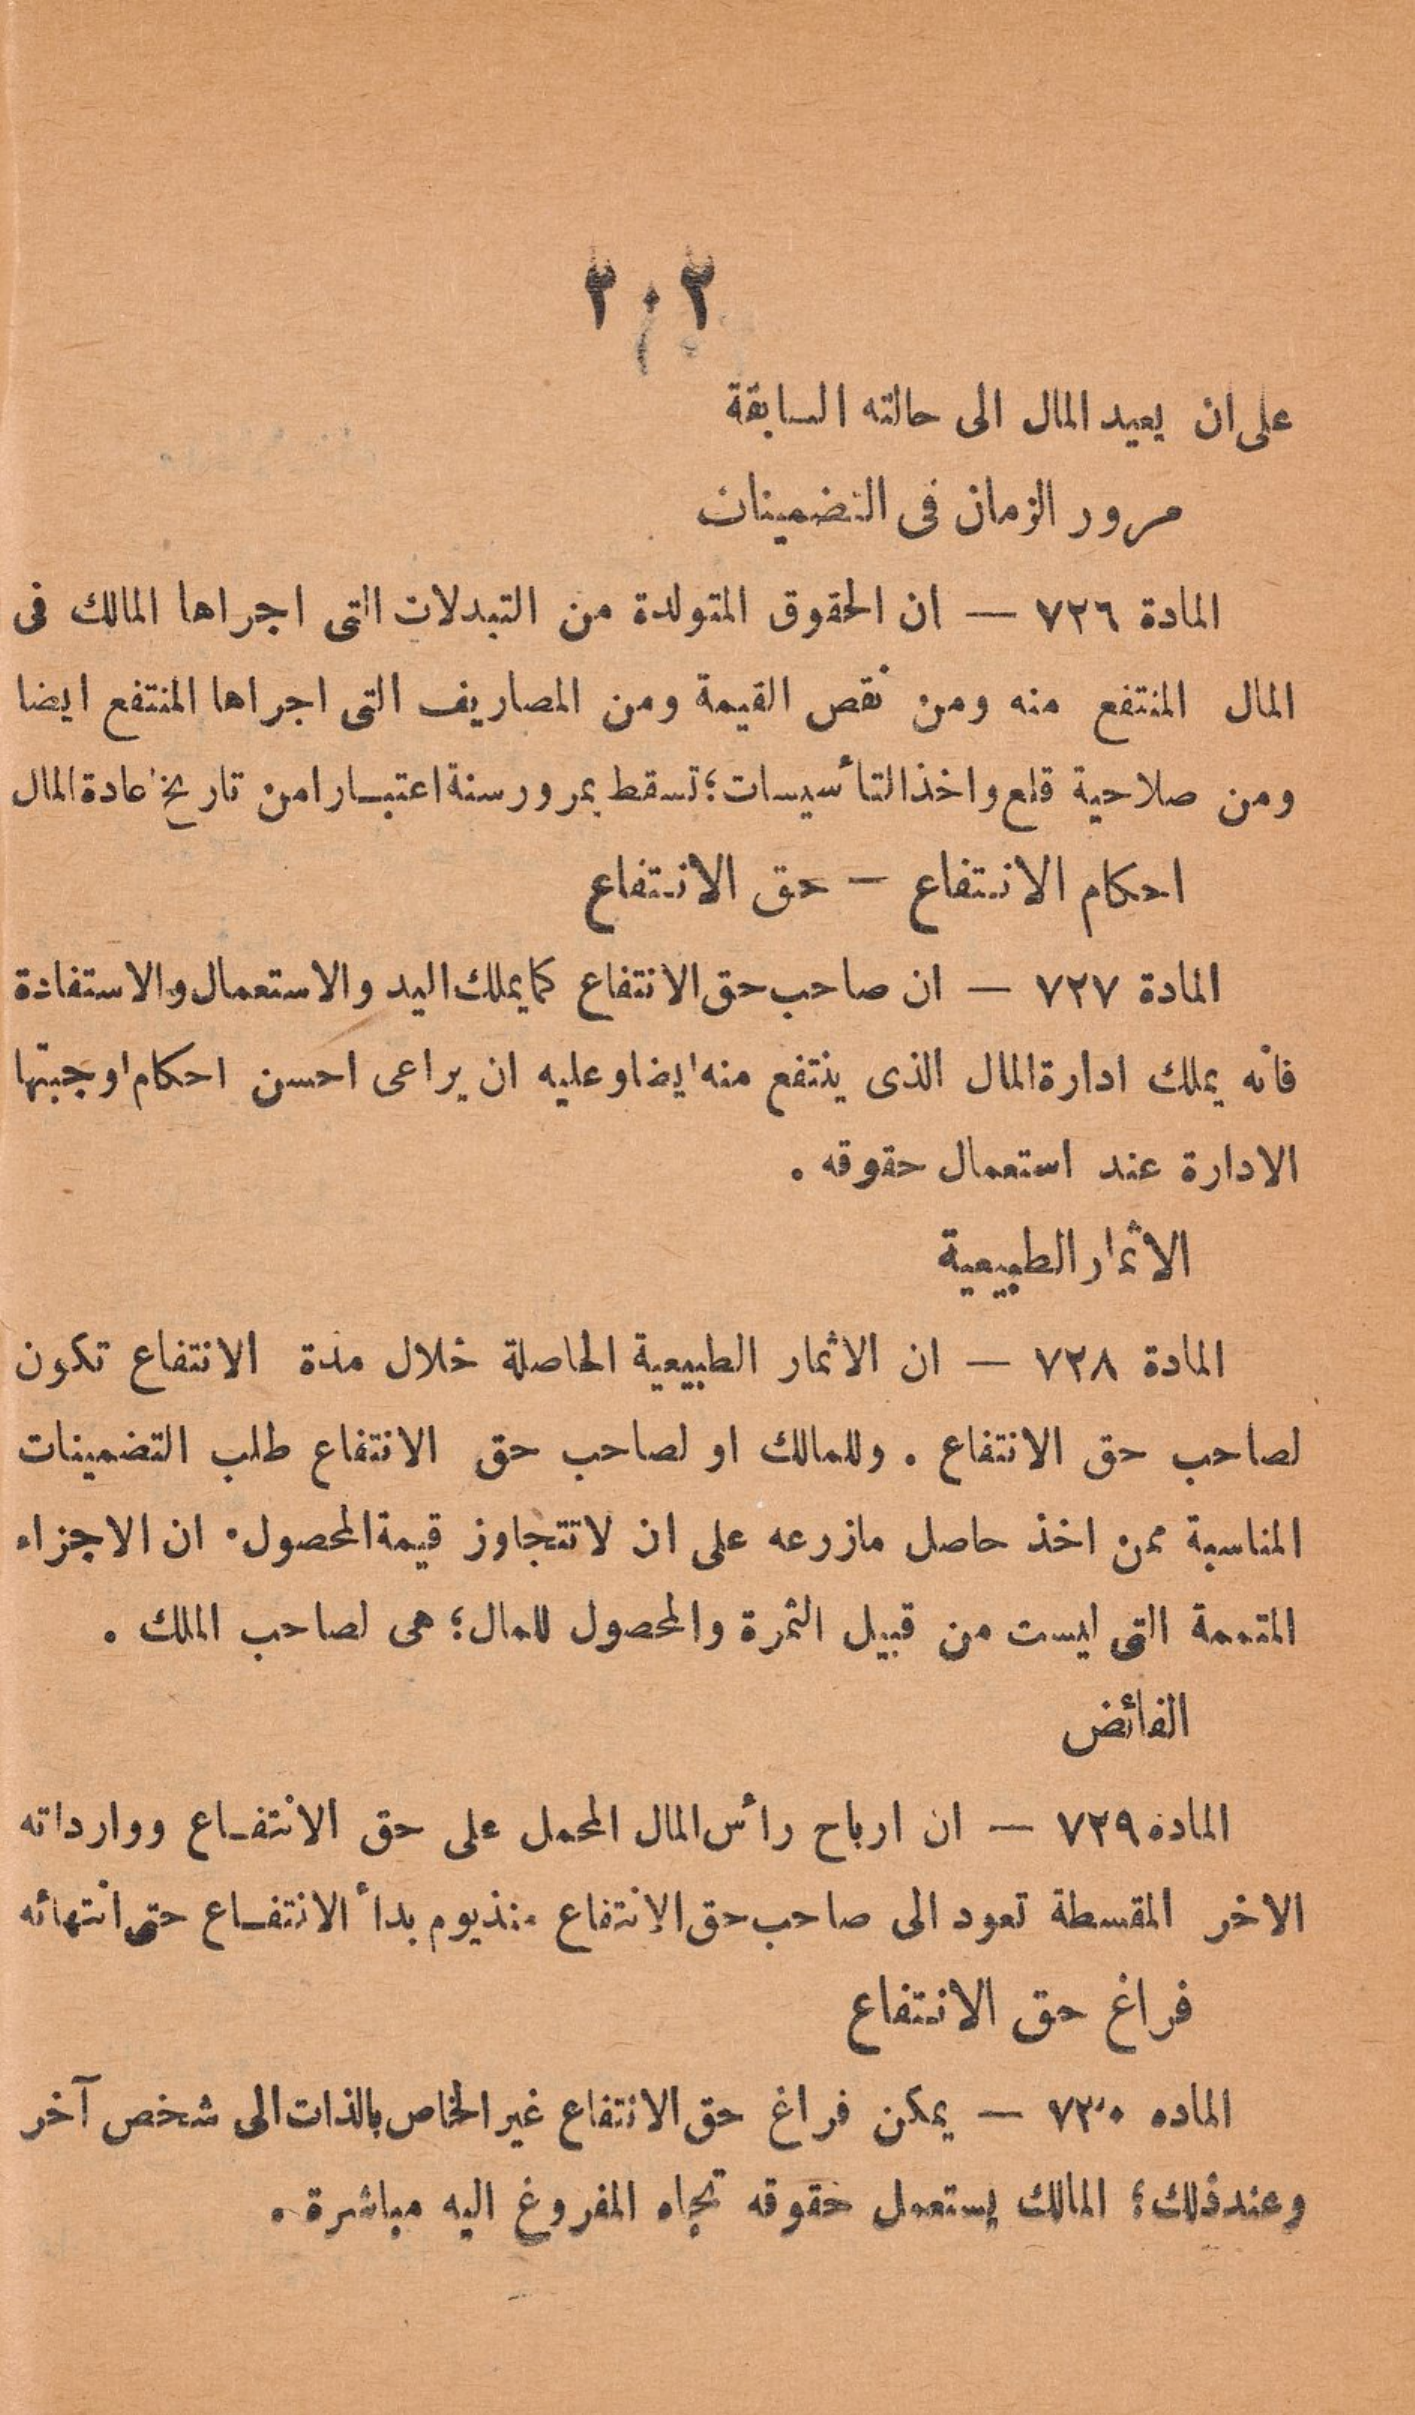 ٢٠٢
على ان يعيد المال الى حالته السابقة
مرور الزمان فى التضمينات
المادة ٧٢٦ — ان الحقوق المتولدة من التبدلات التى اجراها المالك فى
المال المنتفع منه ومن نقص القيمة ومن المصاريف التى اجراها المنتفع ايضا
ومن صلاحية قلع واخذ التأسيسات؛ تسقط بمرور سنة اعتبارا من تاريخ اعادة المال
احكام الانتفاع — حق الانتفاع
المادة ٧٢٧ — ان صاحب حق الانتفاع كما يملك اليد والاستعمال والاستفادة
فانه يملك ادارة المال الذى ينتفع منه ايضا وعليه ان يراعى احسن احكام اوجبتها
الادارة عند استعمال حقوقه .
الاثمار الطبيعية
المادة ٧٢٨ — ان الاثمار الطبيعية الحاصلة خلال مدة الانتفاع تكون
لصاحب حق الانتفاع . وللمالك او لصاحب حق الانتفاع طلب التضمينات
المناسبة ممن اخذ حاصل مازرعه على ان لاتتجاوز قيمة المحصول . ان الاجزاء
المتممة التى ليست من قبيل الثمرة والمحصول للمال؛ هى لصاحب الملك .
الفائض
الماده ٧٢٩ — ان ارباح رأس المال المحمل على حق الانتفاع ووارداته
الاخر المقسطة تعود الى صاحب حق الانتفاع منذ يوم بدأ الانتفاع حتى انتهائه
فراغ حق الانتفاع
الماده ٧٣٠ — يمكن فراغ حق الانتفاع غير الخاص بالذات الى شخص آخر
وعند ذلك؛ المالك يستعمل حقوقه تجاه المفروغ اليه مباشرة .